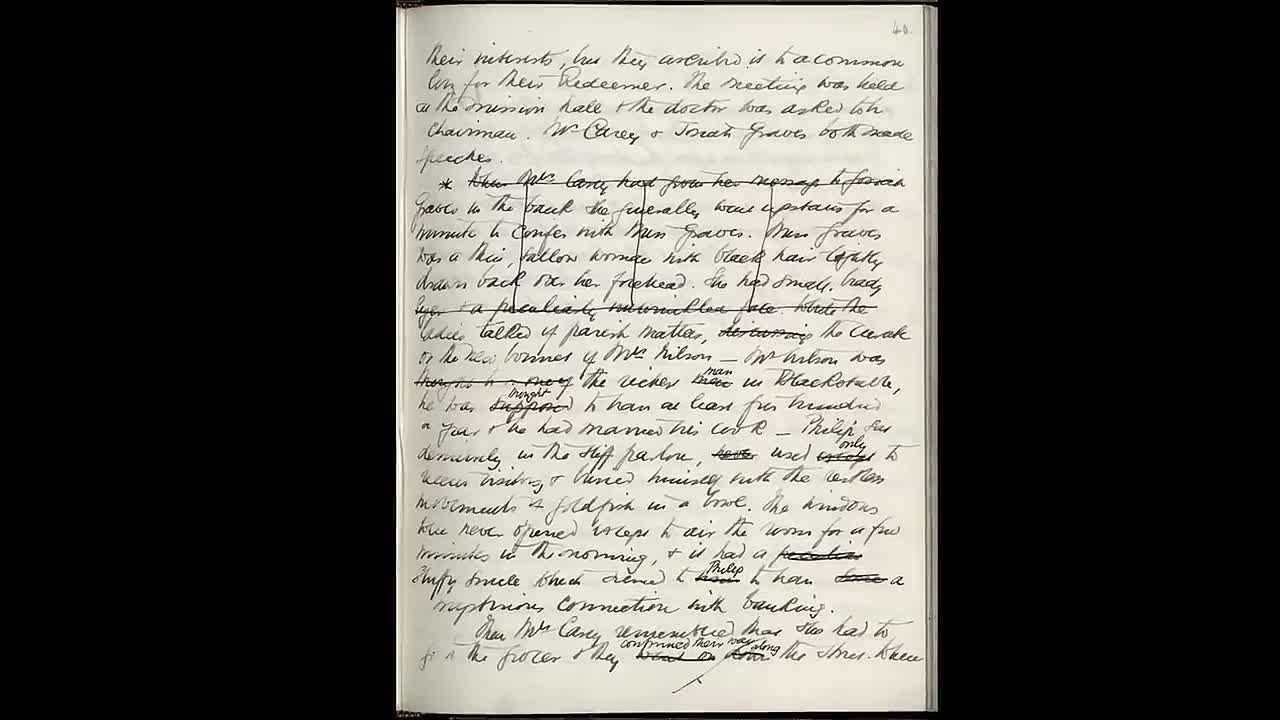 40.
their interests, but they ascribed it to a common
love for their Redeemer. The meeting was held
in the mission hall & the doctor was asked to be
Chairman. Mr Carey & Josiah Graves both made
speeches.
* When Mrs Carey had given her message to Josiah
Graves in the bank she generally went upstairs for a
minute to confer with Miss Graves. Miss Graves
was a thin, sallow woman with black hair tightly
drawn back over her forehead. She had small, beady
eyes & a peculiarly unwrinkled face. While the
ladies talked of parish matters, discussing the curate
or the new bonnet of Mrs Wilson — Mr Wilson was
thought to be one of the richest men man in Blackstable,
he was supposed thought to have at least five hundred
a year & he had married his cook — Philip sat
demurely in the stiff parlour, never used except only to
receive visitors, & busied himself with the restless
movements of goldfish in a bowl. The windows
were never opened except to air the room for a few
minutes in the morning, & it had a peculiar
stuffy smell which seemed to him Philip to have some a
mysterious connection with banking.
Then Mrs Carey remembered that she had to
go to the grocer & they went on continued their way down along the street. When